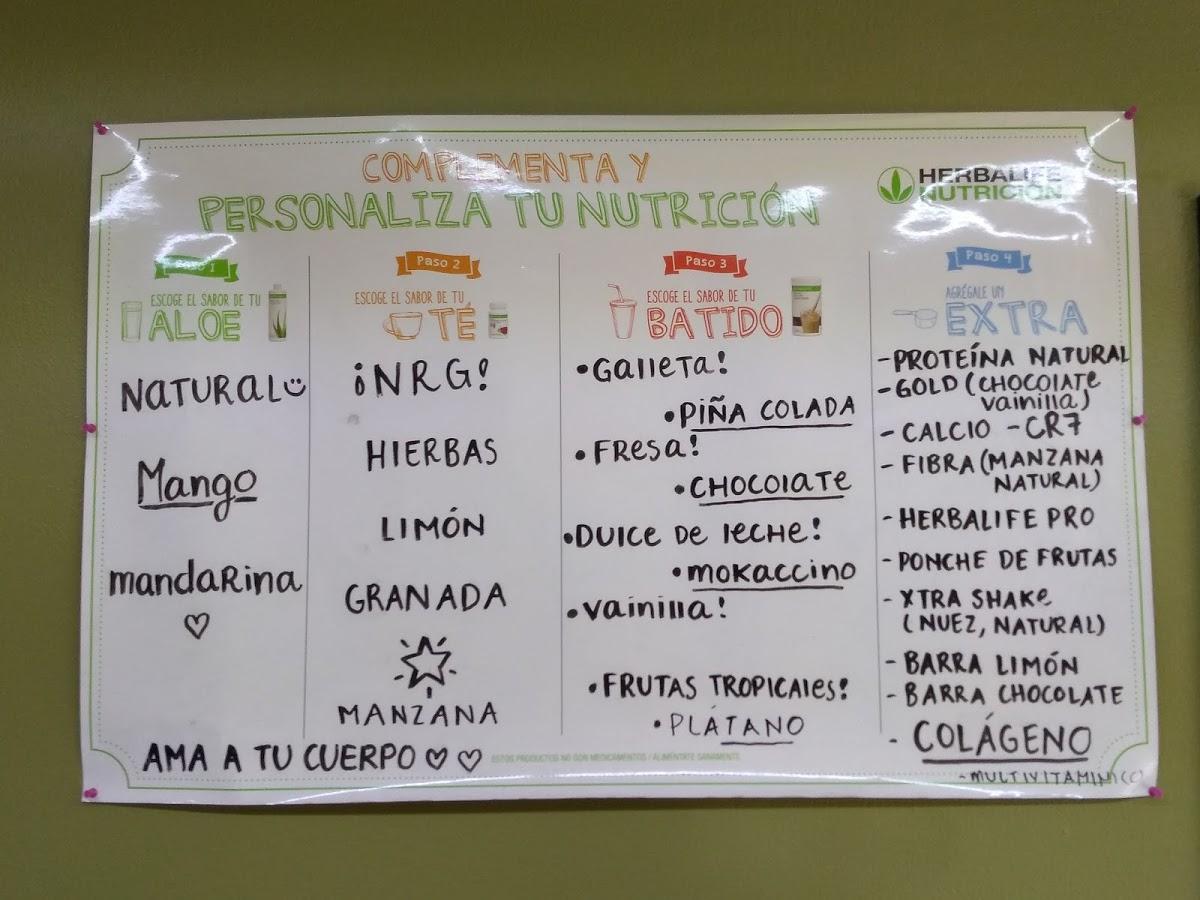 COMPLEMENTA Y
PERSONALIZA TU NUTRICIÓN
HERBALIFE
NUTRICIÓN
Paso 1
ESCOGE EL SABOR DE TU
ALOE
NATURAL
Mango
mandaRina
Paso 2
ESCOGE EL SABOR DE TU
TÉ
¡NRG!
HIERBAS
LIMÓN
GRANADA
MANZANA
Paso 3
ESCOGE EL SABOR DE TU
BATIDO
•Galleta!
•PIÑA COLADA
•FResa!
•CHOCOlATe
•DUlce De leCHe!
•moKaccino
•vainilla!
•FRUTAS TROPICAles!
•PLÁTANO
Paso 4
AGRÉGALE UN
EXTRA
-PROTEÍNA NATURAL
-GOLD (CHOCOlATe
vainilla)
- CALCIO -CR7
- FIBRA (MANZANA
NATURAL)
- HERBALIFE PRO
- PONCHE DE FRUTAS
- XTRA SHAKe
(NUEZ, NATURAL)
- BARRA LIMÓN
- BARRA CHOCOLATE
- COLÁGENO
- MULTIVITAMINICO
AMA A TU CUERPO ♡ ♡
ESTOS PRODUCTOS NO SON MEDICAMENTOS / ALIMÉNTATE SANAMENTE